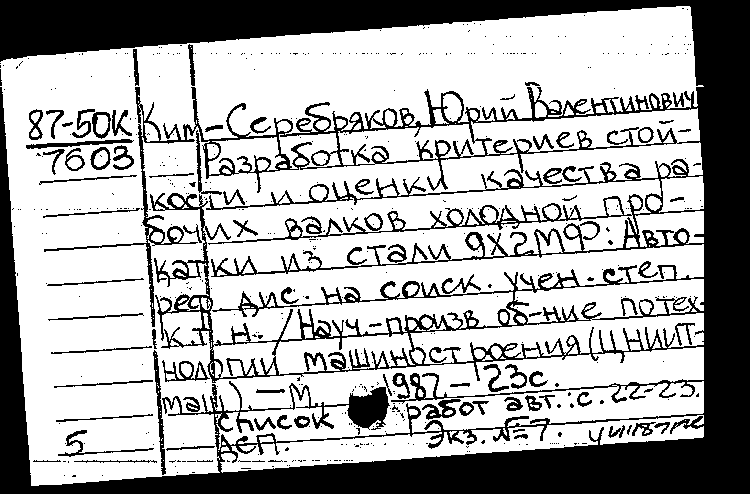 87-50К Ким-Серебряков, Юрий Валентинович
7603 Разработка критериев стой-
кости и оценки качества ра-
бочих валков холодной про-
катки из стали 9Х2МФ: Авто-
реф. дис. на соиск. учен. степ.
к.т.н. / Науч.-произв об-ние по тех-
нологии машиностроения (ЦНИИТ-
маш). — М. 1987. — 23с.
список работ авт.: с. 22-23.
5 ДСП. Экз. №7.